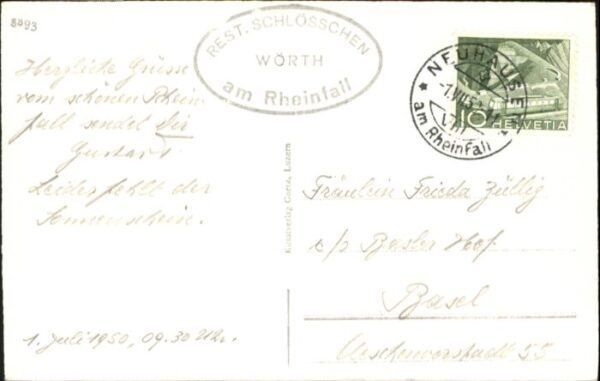 8893
REST. SCHLÖSSCHEN
WÖRTH
am Rheinfall
NEUHAUSEN
am Rheinfall
10 HELVETIA
Herzliche Grüsse
vom schönen Rhein-
fall sendet Dir
Gustav.
Leider fehlt der
Sonnenschein.
1. Juli 1950, 09.30 Uhr.
Kunstverlag Goetz, Luzern
Fräulein Frieda Züllig
c/o Basler Hof
Basel
Aeschenvorstadt 55